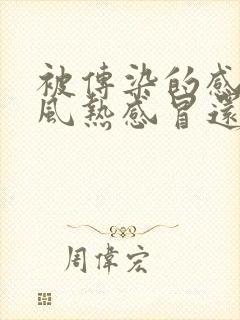 被傳染的感
風熱感冒還
周偉宏